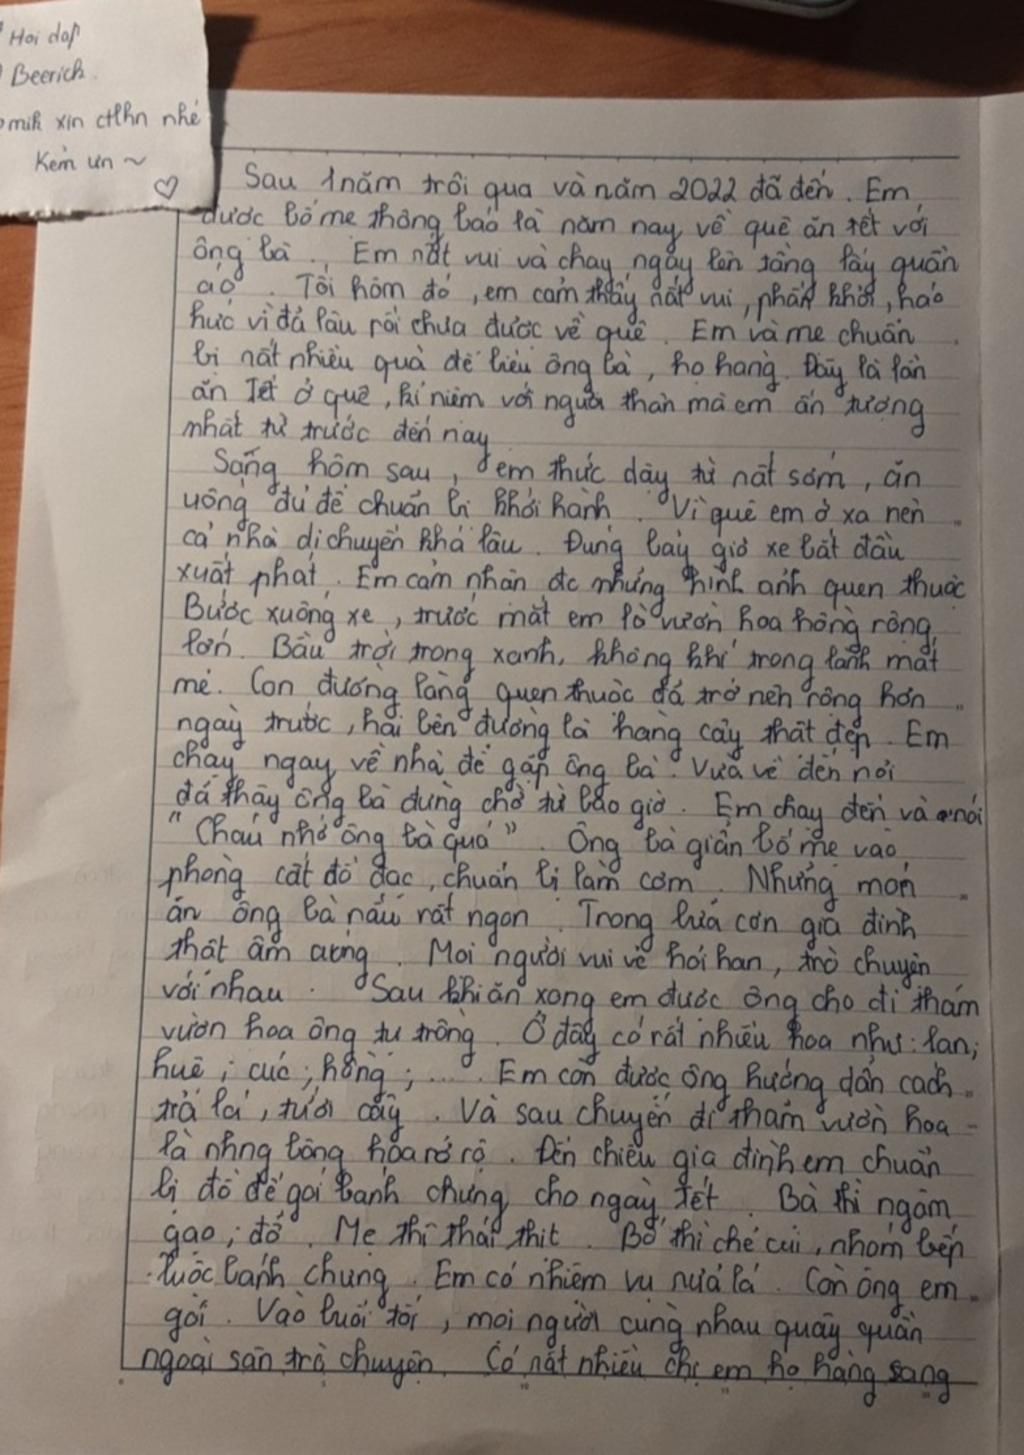 Hoi dap
Beerich.
mik xin ctlhn nhé
Kém ưn ~
Sau 1 năm trôi qua và năm 2022 đã đến. Em
được bố mẹ thông báo là năm nay về quê ăn tết với
ông bà. Em nất vui và chạy ngay lên tầng lấy quần
áo. Tối hôm đó, em cảm thấy nất vui, phấn khởi, háo
hức vì đã lâu rồi chưa được về quê. Em và mẹ chuẩn
bị nất nhiều quà để biếu ông bà, họ hàng. Đây là lần
ăn Tết ở quê, kỉ niệm với người thân mà em ấn tượng
nhất từ trước đến nay
Sáng hôm sau, em thức dậy từ nất sớm, ăn
uống đủ để chuẩn bị khởi hành. Vì quê em ở xa nên
cả nhà di chuyển khá lâu. Đúng bảy giờ xe bắt đầu
xuất phát. Em cảm nhận đc những hình ảnh quen thuộc
Bước xuống xe, trước mắt em là vườn hoa hồng rộng
lớn. Bầu trời trong xanh, không khí trong lành mát
mẻ. Con đường làng quen thuộc đã trở nên rộng hơn
ngày trước, hai bên đường là hàng cây thật đẹp. Em
chạy ngay về nhà để gặp ông bà. Vừa về đến nơi
đã thấy ông bà đứng chờ từ bao giờ. Em chạy đến và nói
"Cháu nhớ ông bà quá". Ông bà giản bố mẹ vào
phòng cất đồ đạc, chuẩn bị làm cơm. Những món
ăn ông bà nấu rất ngon. Trong bữa cơn gia đình
thật ấm cúng. Mọi người vui vẻ hỏi han, trò chuyện
với nhau. Sau khi ăn xong em được ông cho đi thăm
vườn hoa ông tự trồng. Ở đây có rất nhiều hoa như: lan;
huệ; cúc; hồng; ..... Em còn được ông hướng dẫn cách
trả lá, tưới cây. Và sau chuyến đi thăm vườn hoa
là nhng bông hoa rớ rộ. Đến chiều gia đình em chuẩn
bị đồ để gói bánh chưng cho ngày Tết. Bà thì ngâm
gạo; đỗ. Mẹ thì thái thịt. Bố thì chẻ củi, nhóm bếp
luộc bánh chưng. Em có nhiệm vụ rửa lá. Còn ông em
gói. Vào buổi tối, mọi người cùng nhau quây quần
ngoài sân trò chuyện. Có nất nhiều chị em họ hàng sang